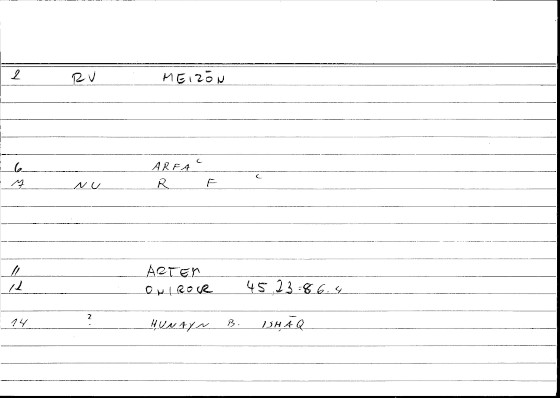 2 RV MEIZŌN
6 ARFAʿ
7 NU R F ʿ
11 ARTEM
12 ONIROCR 45,23:86.4
14 ? ḤUNAYN B. ISḤĀQ